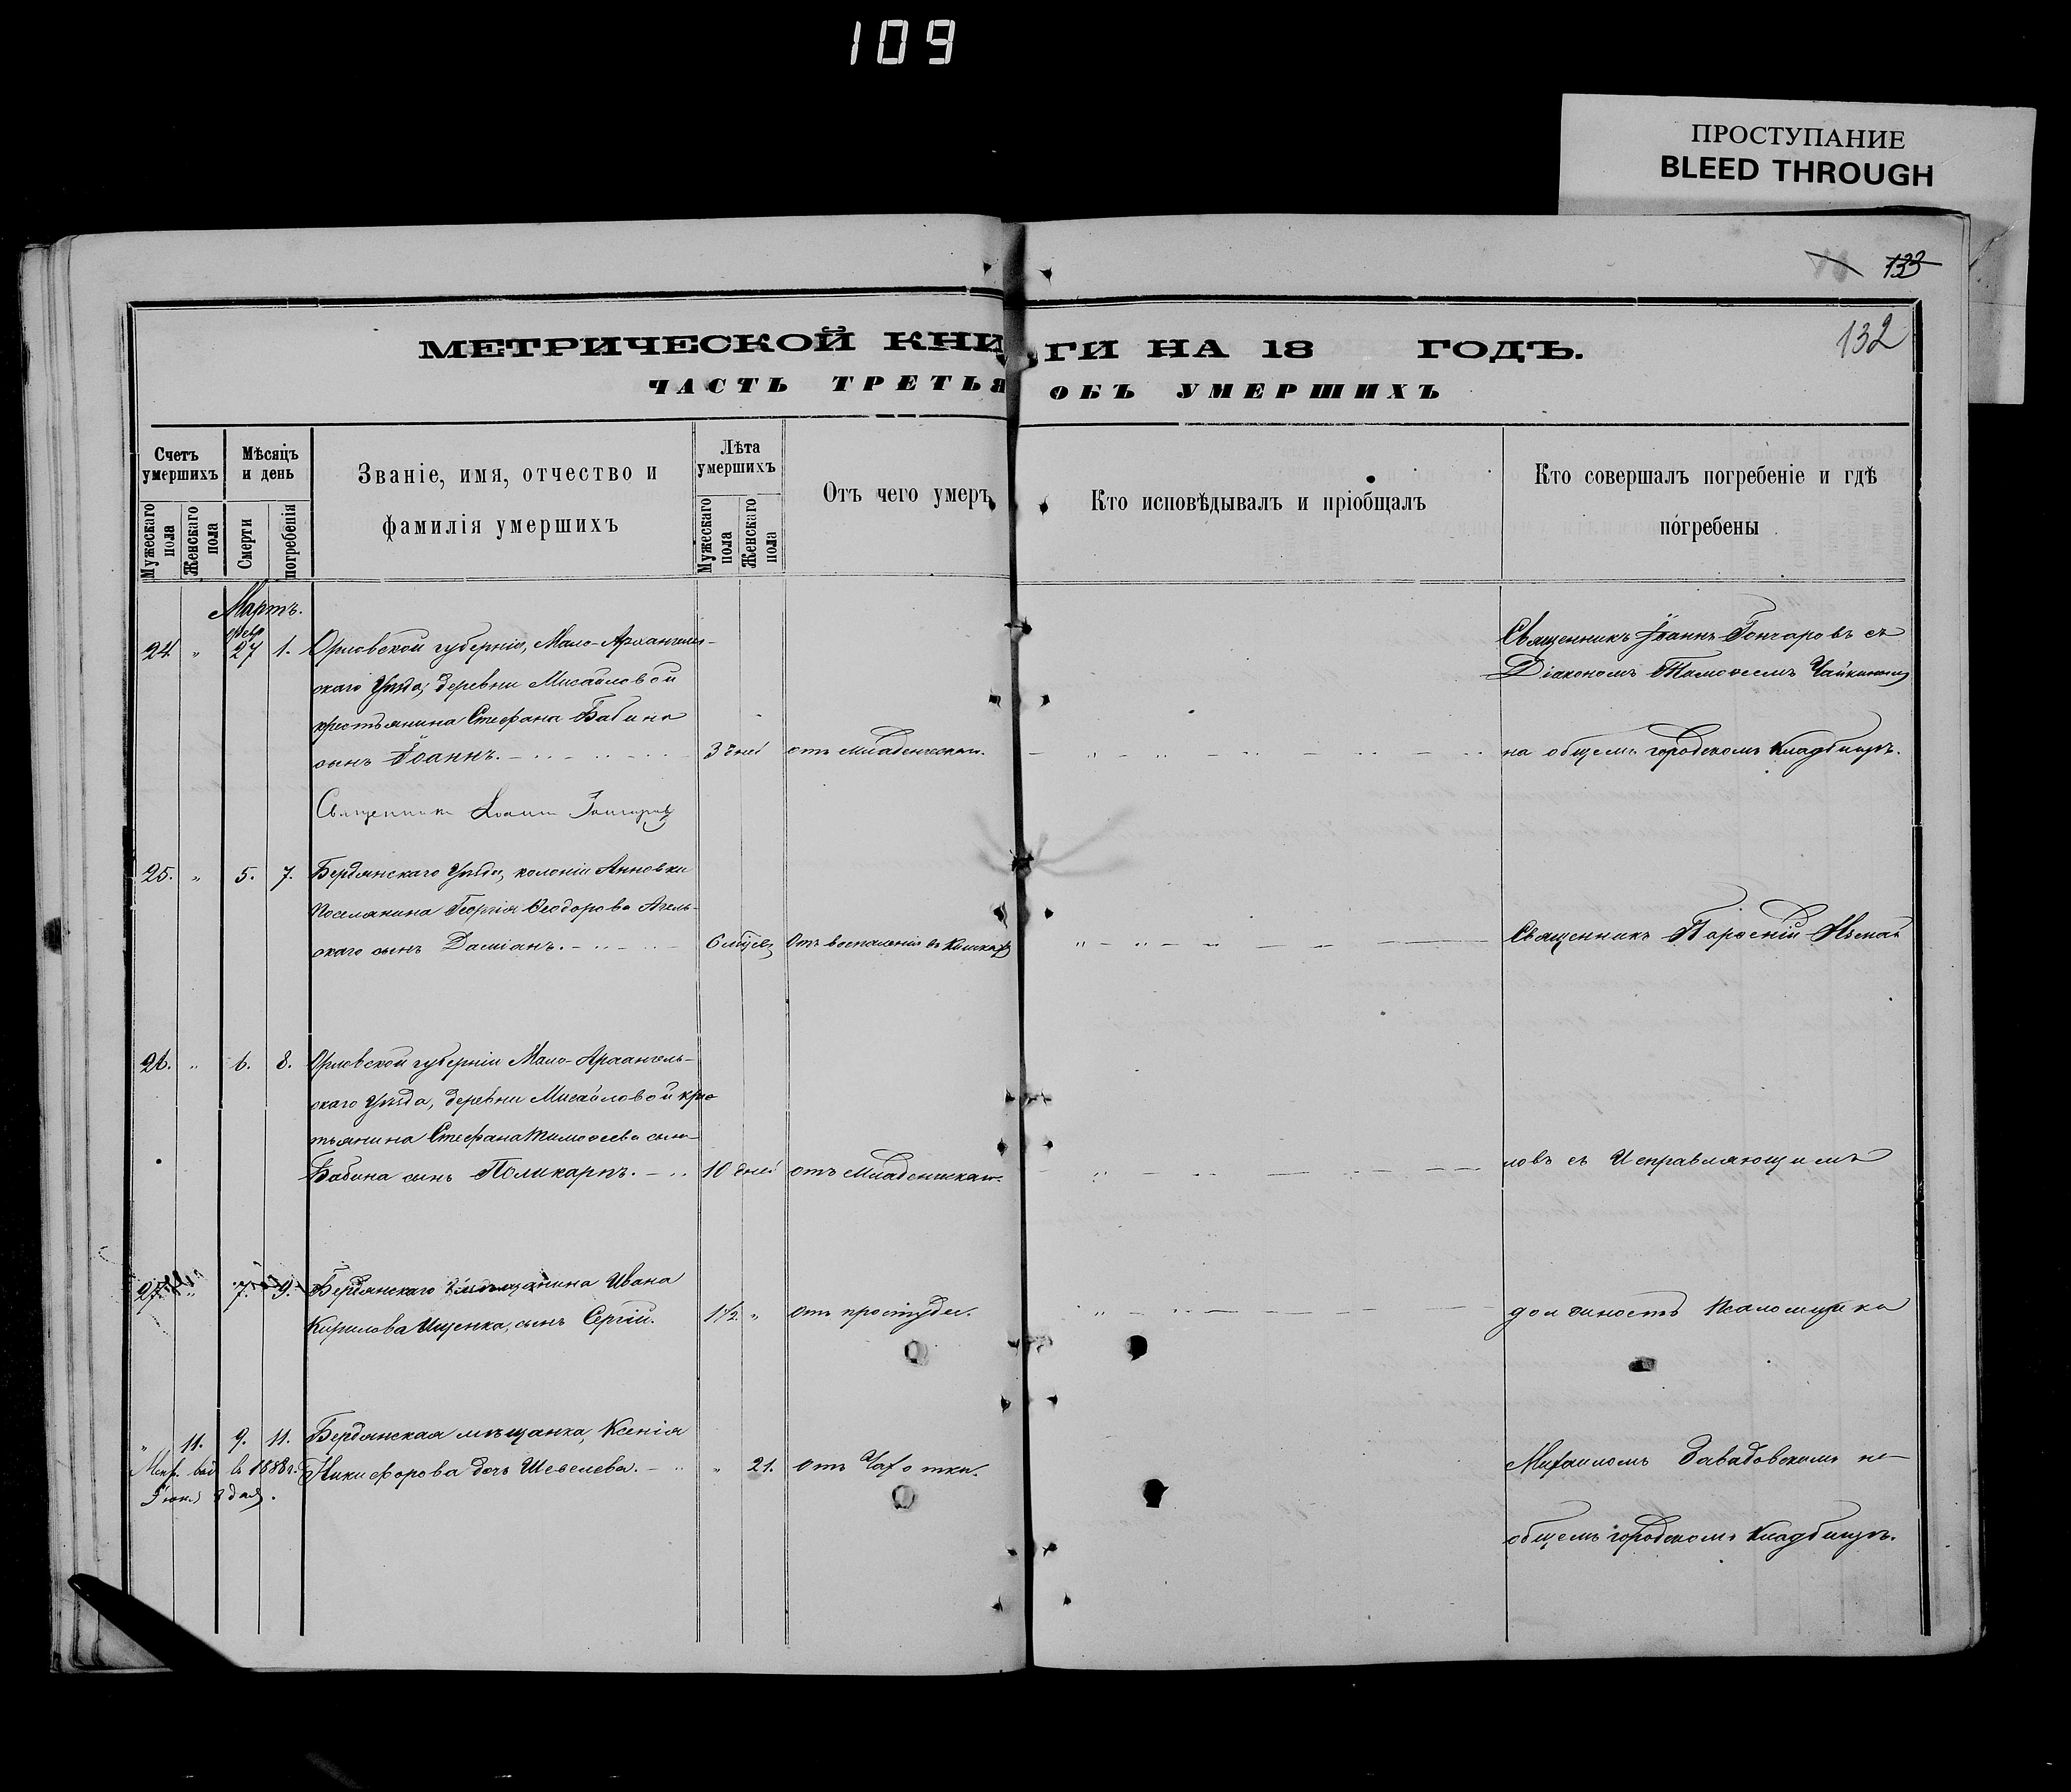 109
ПРОСТУПАНИЕ
BLEED THROUGH
133
132
МЕТРИЧЕСКОЙ КНИГИ НА 18 ГОДЪ.
ЧАСТЬ ТРЕТЬЯ ОБЪ УМЕРШИХЪ
Счетъ умершихъ
Мужескаго пола
Женскаго пола
Мѣсяцъ и день
Смерти
погребенія
Званіе, имя, отчество и
фамилія умершихъ
Лѣта умершихъ
Мужескаго пола
Женскаго пола
Отъ чего умеръ
Кто исповѣдывалъ и пріобщалъ
Кто совершалъ погребеніе и гдѣ
погребены
Мартъ.
февр
24. " 27 1. Орловской губерніи, Мало-Архангель-
скаго Уѣзда, деревни Мисаиловой
крестьянина Стефана Бабина
сынъ Іоаннъ. 3 дней отъ младенческой.
Священникъ Іоаннъ Гончаровъ съ
Діакономъ Тимоѳеемъ Чайкинымъ
на общемъ городскомъ кладбищѣ.
Священникъ Іоаннъ Гончаровъ
25. " 5. 7. Бердянскаго Уѣзда, колоніи Анновки
поселянина Георгія Ѳеодорова Агель-
скаго сынъ Даміанъ. 6 мѣсяц. Отъ воспаленія въ кишкахъ
Священникъ
26. " 6. 8. Орловской губерніи Мало-Архангель-
скаго Уѣзда, деревни Мисаиловой крес
тьянина Стефана Тимоѳеева сына
Бабина сынъ Поликарпъ. 10 дней отъ младенческой.
ловъ съ Исправляющимъ
27. " 7. 9. Бердянскаго мѣщанина Ивана
Кирилова Ищенка, сынъ Сергій. 1 1/2 " отъ простуды.
должность Псаломщика
" 11. 9. 11. Бердянская мѣщанка, Ксенія
Никифорова дочь Шевелева. " 21. отъ Чахотки.
Метр. выд. въ 1888 г.
Михаиломъ Завадовскимъ на
общемъ городскомъ кладбищѣ.